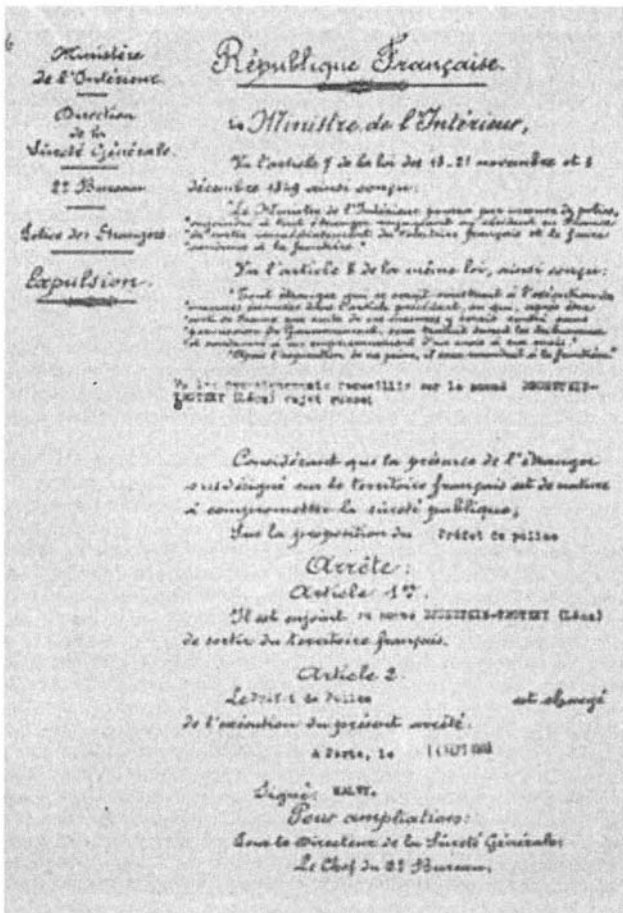 Ministère
de l'Intérieur
Direction
de la
Sûreté Générale.
2e Bureau
Police des Étrangers
Expulsion.
République Française.
Le Ministre de l'Intérieur,
Vu l'article 7 de la loi des 13-21 novembre et 3
décembre 1849 ainsi conçu:
"Le Ministre de l'Intérieur pourra par mesure de police,
"enjoindre à tout étranger voyageant ou résidant en France
"de sortir immédiatement du territoire français et le faire
"conduire à la frontière."
Vu l'article 8 de la même loi, ainsi conçu:
"Tout étranger qui se serait soustrait à l'exécution des
"mesures énoncées dans l'article précédent, ou qui, après être
"sorti de France par suite de ces mesures y serait rentré sans
"permission du Gouvernement, sera traduit devant les tribunaux
"et condamné à un emprisonnement d'un mois à six mois."
"Après l'expiration de sa peine, il sera conduit à la frontière."
Vu les renseignements recueillis sur le nommé BRONSTEIN-
TROTSKY (Léon) sujet russe;
Considérant que la présence de l'étranger
susdésigné sur le territoire français est de nature
à compromettre la sûreté publique;
Sur la proposition du Préfet de police
Arrête:
Article 1er.
Il est enjoint au nommé BRONSTEIN-TROTSKY (Léon)
de sortir du territoire français.
Article 2.
Le Préfet de Police est chargé
de l'exécution du présent arrêté.
A Paris, le 14 SEPT
Signé: MALVY.
Pour ampliation:
Pour le Directeur de la Sûreté Générale:
Le Chef du 2e Bureau,